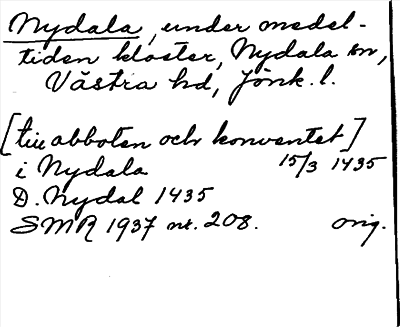 Nydala, under medel-
tiden kloster, Nydala sn,
Västra hd, Jönk. l.
[till abboten och konventet]
i Nydala 15/3 1435
D. Nydal 1435
SMR 1937 nr. 208. orig.